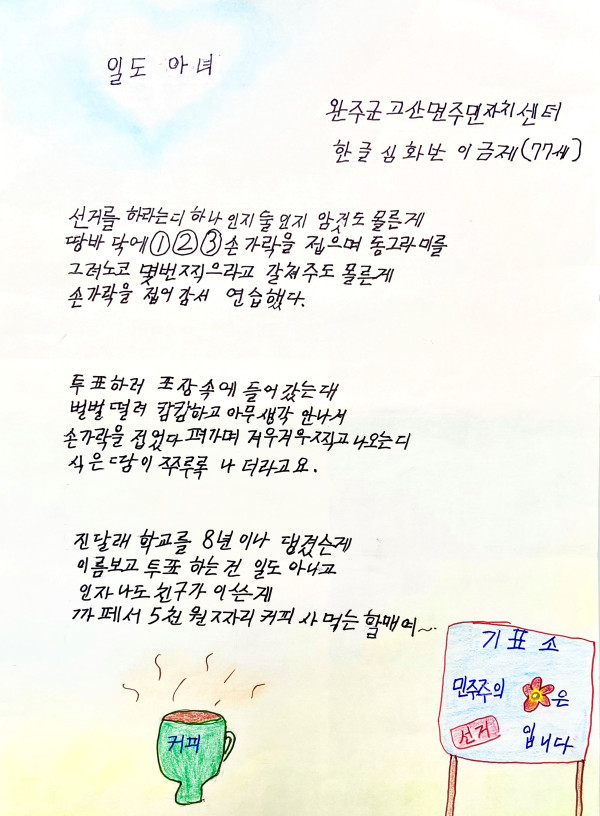 일도 아녀
완주군고산면주민자치센터
한글심화반 이금제(77세)
선거를 하라는디 하나 인지 둘 인지 암것도 몰른게
땅바닥에 ① ② ③ 손가락을 접으며 동그라미를
그려노코 몇번찍으라고 갈쳐주도 몰른게
손가락을 접어감서 연습했다.
투표하러 포장속에 들어 갔는대
벌벌 떨려 캄캄하고 아무생각 안나서
손가락을 접었다 펴가며 겨우겨우찍고 나오는디
식은 땀이 쭈루룩 나 더라고요.
진달래 학교를 8년이나 댕겼슨게
이름보고 투표 하는 건 일도 아니고
인자 나도 친구가 이쓴게
까페서 5천 원짜리 커피 사 먹는 할매여~
기표소
민주주의 은
선거 입니다
커피